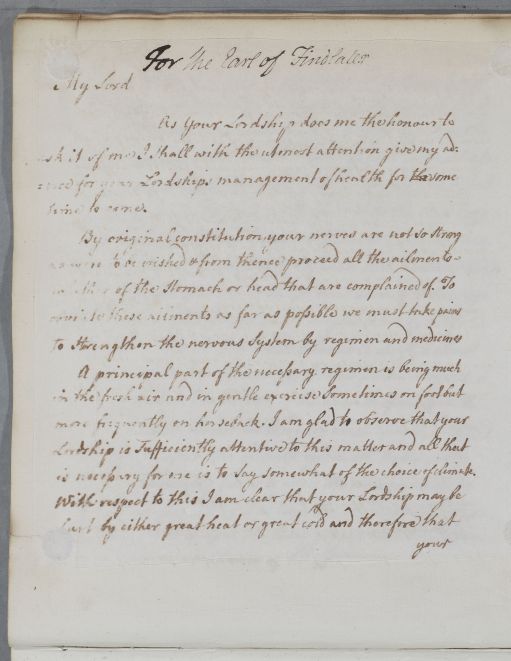 For the Earl of Findlater
My Lord
As Your Lordship does me the honour to
ask it of me I shall with the utmost attention give my ad:
:vice for your Lordships management of health for some
time to come.
By original constitution your nerves are not so strong
as were to be wished & from thence proceed all the ailments
of the Stomach or head that are complained of. To
obviate these ailments as far as possible we must take pains
to strengthen the nervous System by regimen and medicines
A principal part of the necessary regimen is being much
in the fresh air and in gentle exercise Sometimes on foot but
more frequently on horseback. I am glad to observe that your
Lordship is Sufficiently attentive to this matter and all that
is necessary for me is to Say somewhat of the choice of climate.
With respect to this I am clear that your Lordship may be
hurt by either great heat or great cold and therefore that
your